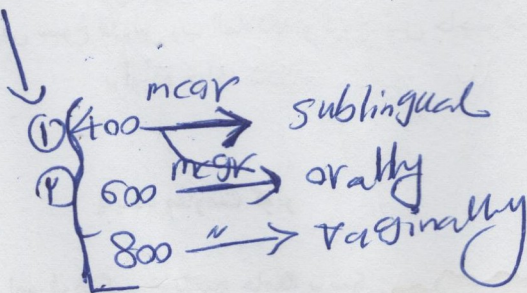 ① 400 mcgr → sublingual
② 600 mcgr → orally
800 " → vaginally